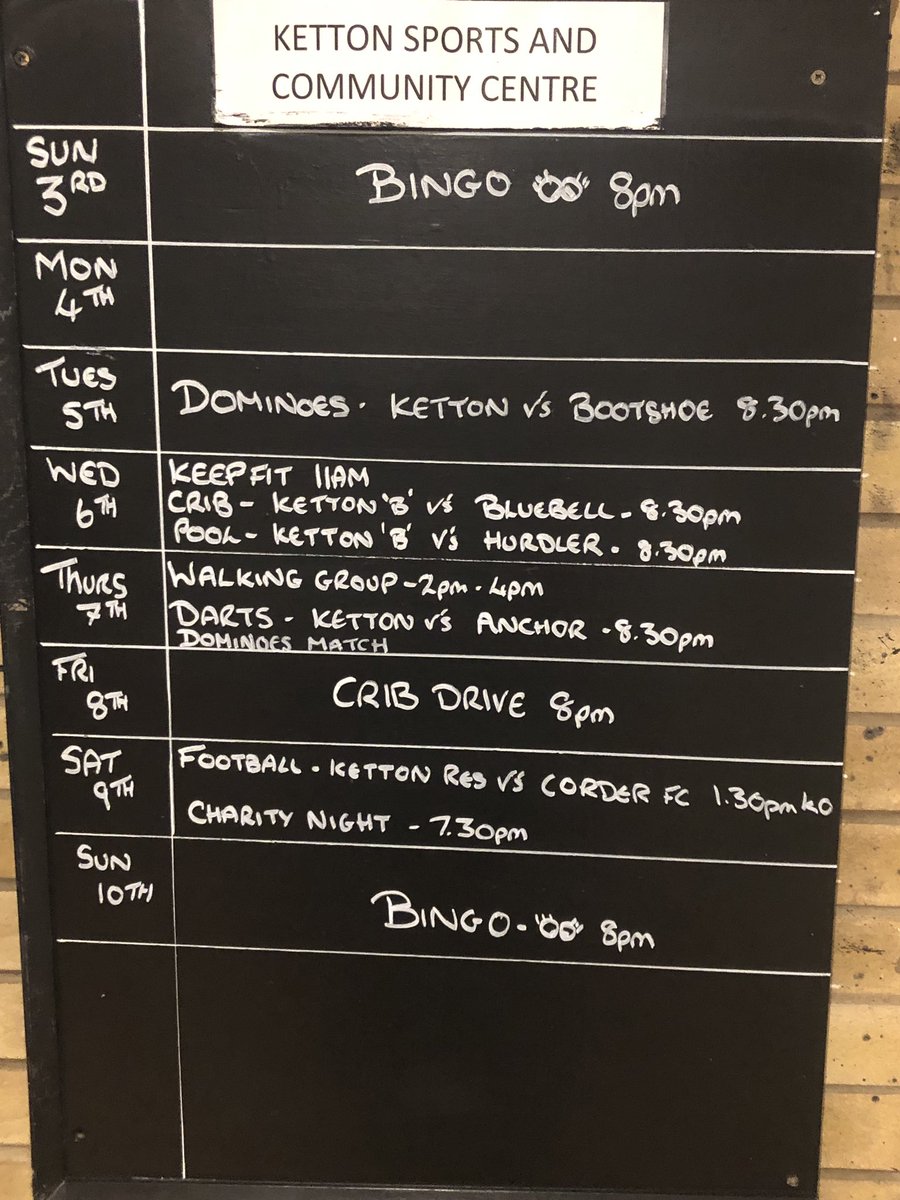 KETTON SPORTS AND
COMMUNITY CENTRE
SUN
3RD
BINGO 8pm
MON
4TH
TUES
5TH
DOMINOES - KETTON v's BOOTSHOE 8.30pm
WED
6TH
KEEPFIT 11AM
CRIB - KETTON 'B' v's BLUEBELL - 8.30pm
POOL - KETTON 'B' v's HURDLER - 8.30pm
THURS
7TH
WALKING GROUP - 2pm - 4pm
DARTS - KETTON v's ANCHOR - 8.30pm
DOMINOES MATCH
FRI
8TH
CRIB DRIVE 8pm
SAT
9TH
FOOTBALL - KETTON RES v's CORDER FC 1.30pm KO
CHARITY NIGHT - 7.30pm
SUN
10TH
BINGO - 8pm